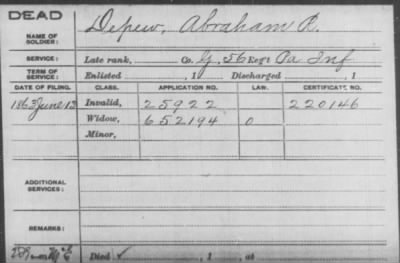 DEAD
NAME OF SOLDIER: Depew, Abraham R.
SERVICE: Late rank, Co. G, 56 Reg't Pa Inf
TERM OF SERVICE: Enlisted , 1 Discharged , 1
DATE OF FILING. CLASS. APPLICATION NO. LAW. CERTIFICATE NO.
1863 June 13 Invalid, 25922 220146
Widow, 652194 0
Minor,
ADDITIONAL SERVICES:
REMARKS:
Died , 1 , at